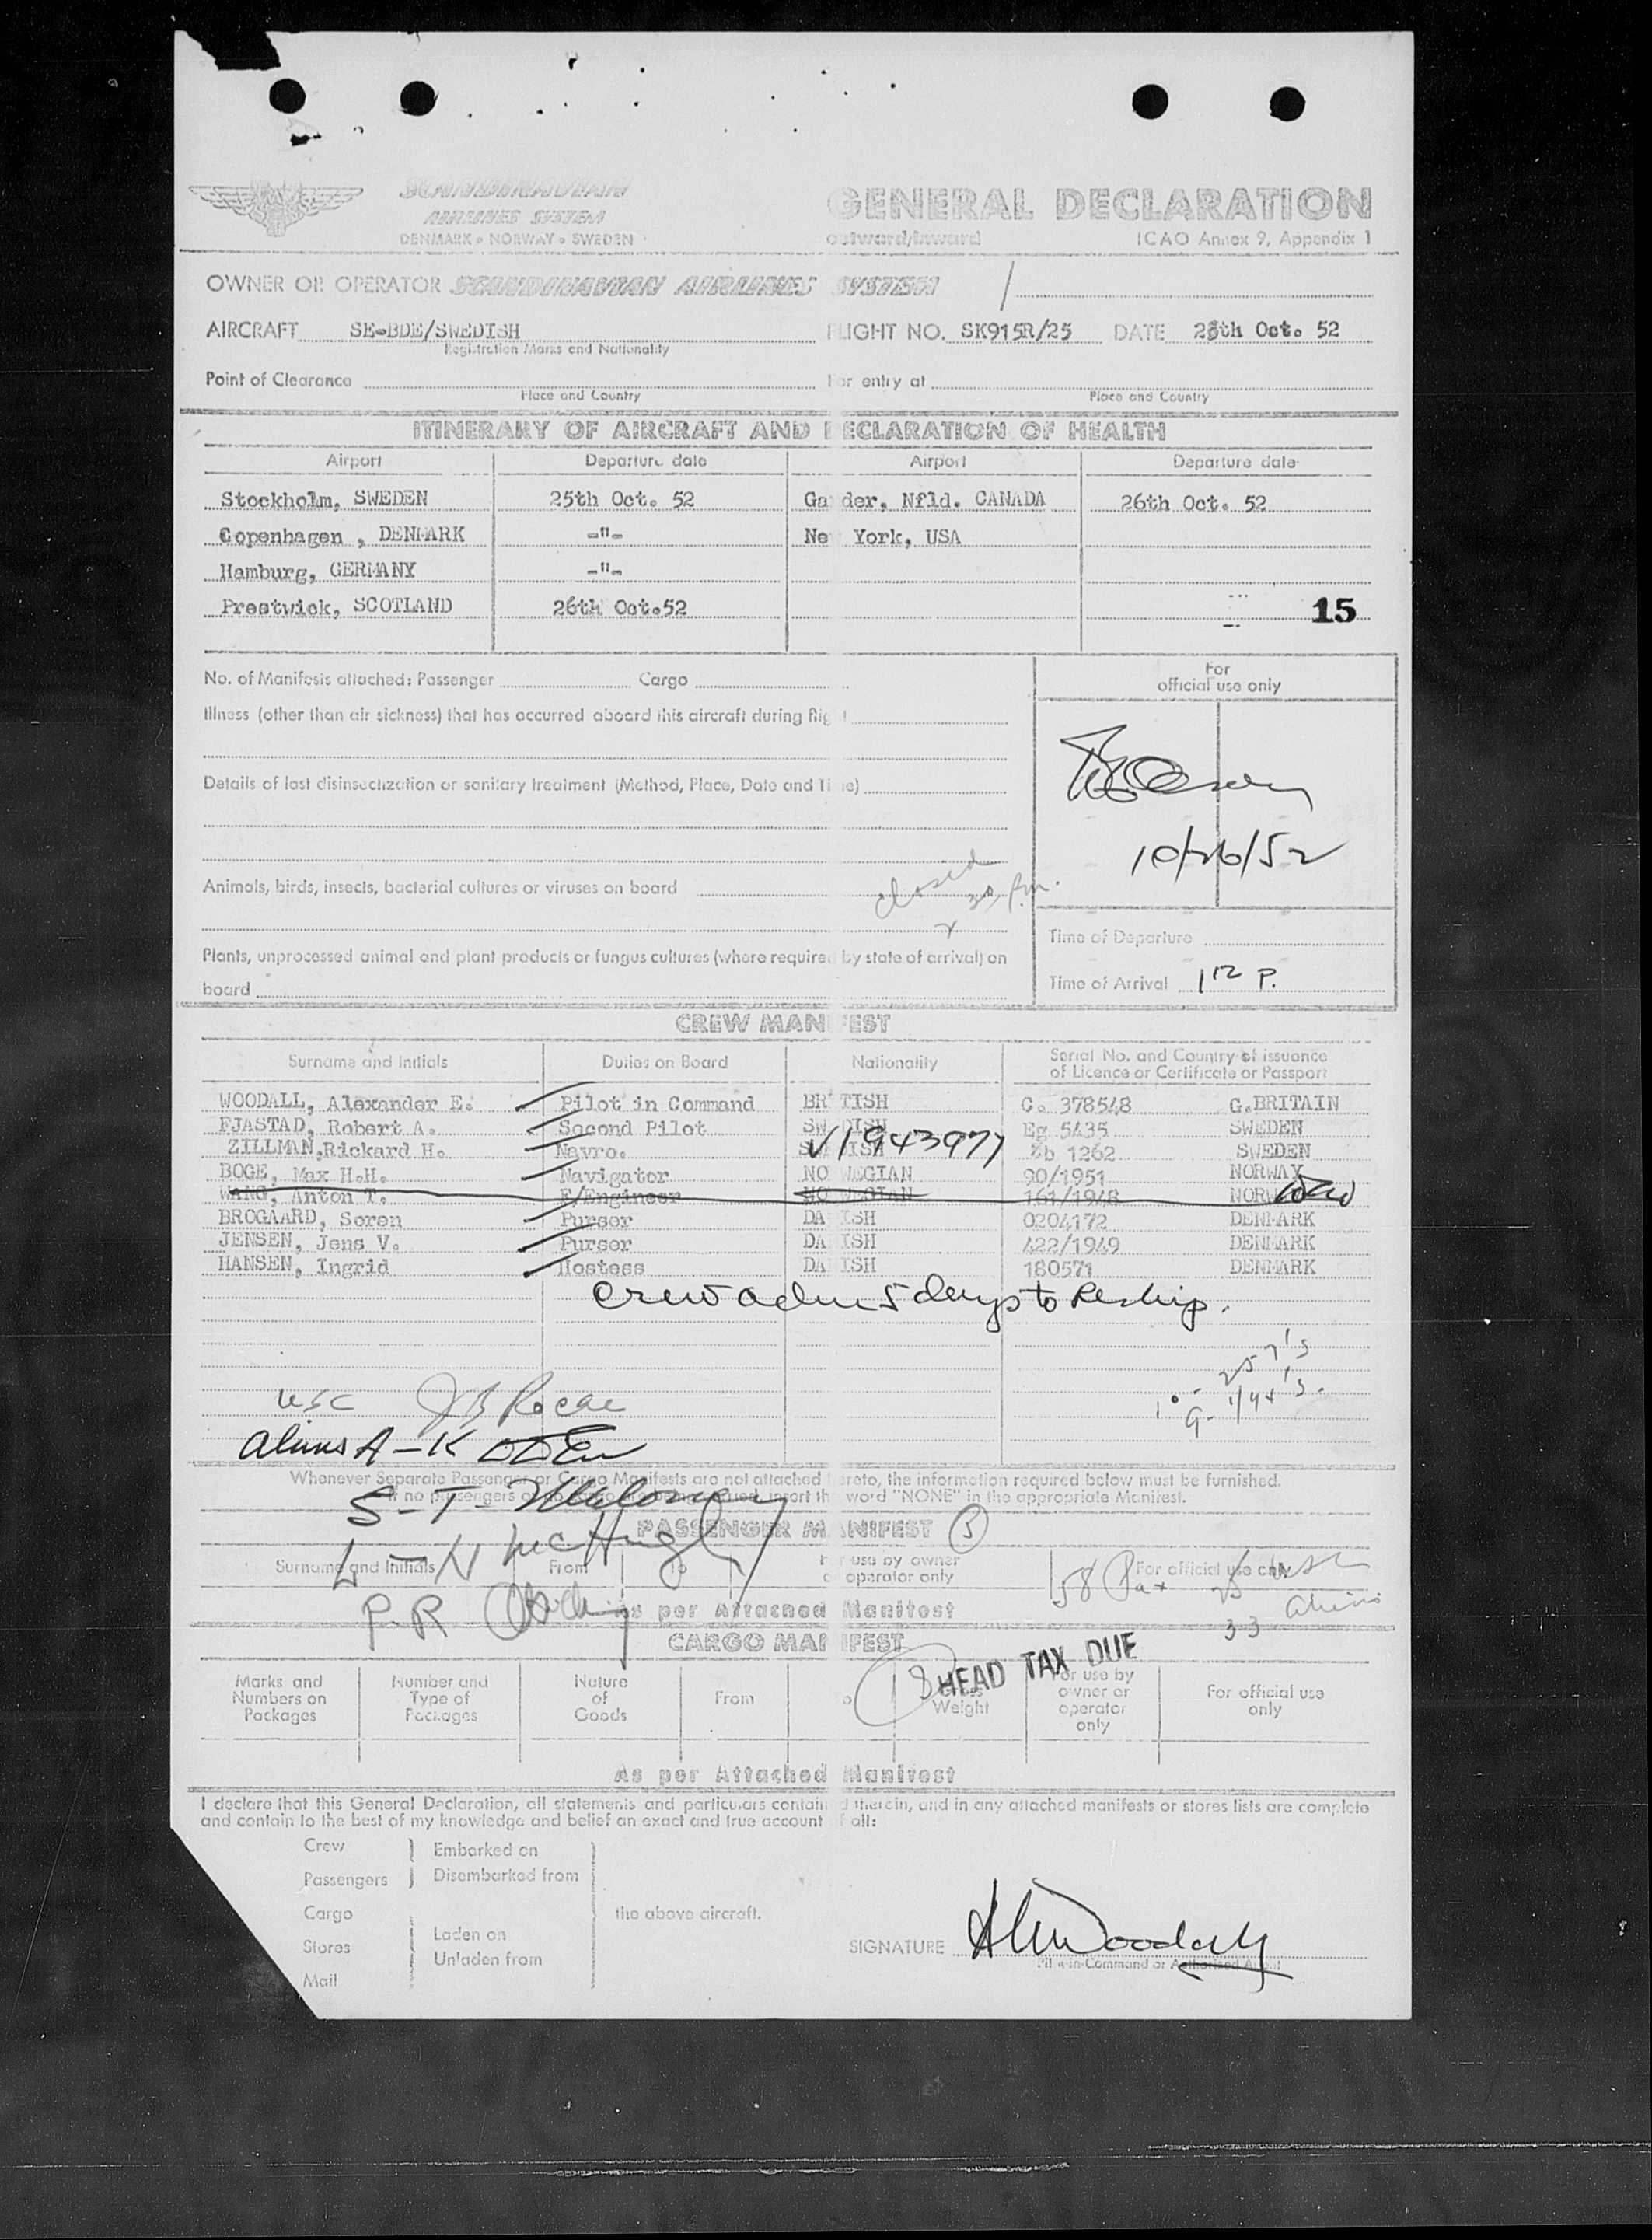 SCANDINAVIAN
AIRLINES SYSTEM
DENMARK • NORWAY • SWEDEN
GENERAL DECLARATION
outward/inward ICAO Annex 9, Appendix 1
OWNER OR OPERATOR SCANDINAVIAN AIRLINES SYSTEM
AIRCRAFT SE-BDE/SWEDISH FLIGHT NO. SK915R/25 DATE 25th Oct. 52
Registration Marks and Nationality
Point of Clearance For entry at
Place and Country Place and Country
ITINERARY OF AIRCRAFT AND DECLARATION OF HEALTH
Airport Departure date Airport Departure date
Stockholm, SWEDEN 25th Oct. 52 Gander, Nfld. CANADA 26th Oct. 52
Copenhagen , DENMARK -"- New York, USA
Hamburg, GERMANY -"-
Prestwick, SCOTLAND 26th Oct.52 15
No. of Manifests attached: Passenger Cargo
For
official use only
Illness (other than air sickness) that has occurred aboard this aircraft during flight
Details of last disinsectization or sanitary treatment (Method, Place, Date and Time)
10/26/52
closed
Animals, birds, insects, bacterial cultures or viruses on board
Time of Departure
Plants, unprocessed animal and plant products or fungus cultures (where required by state of arrival) on
board
Time of Arrival 1 12 P.
CREW MANIFEST
Surname and Initials Duties on Board Nationality Serial No. and Country of issuance
of Licence or Certificate or Passport
WOODALL, Alexander E. Pilot in Command BRITISH C. 378548 G.BRITAIN
FJASTAD, Robert A. Second Pilot SWEDISH Eg 5435 SWEDEN
ZILLMAN,Rickard H. Navro. SWEDISH V1943977 Eb 1262 SWEDEN
BOGE, Max H.H. Navigator NORWEGIAN 90/1951 NORWAY
WANG, Anton T. E/Engineer NORWEGIAN 161/1948 NORWAY
BROGAARD, Soren Purser DANISH 0204172 DENMARK
JENSEN, Jens V. Purser DANISH 422/1949 DENMARK
HANSEN, Ingrid Hostess DANISH 180571 DENMARK
Crew adm 5 days to Reship.
usc JB Roche
aliens A-K
Whenever Separate Passenger or Cargo Manifests are not attached hereto, the information required below must be furnished.
insert the word "NONE" in the appropriate Manifest.
S-T- Maloney
PASSENGER MANIFEST 3
L-N McHugh
Surname and Initials From To For use by owner
or operator only
For official use only
58 Pax 25 usc
P-R
33 aliens
As per Attached Manifest
CARGO MANIFEST
18 HEAD TAX DUE
Marks and
Numbers on
Packages
Number and
Type of
Packages
Nature
of
Goods
From
To
Gross
Weight
For use by
owner or
operator
only
For official use
only
As per Attached Manifest
I declare that this General Declaration, all statements and particulars contained therein, and in any attached manifests or stores lists are complete
and contain to the best of my knowledge and belief an exact and true account of all:
Crew Embarked on
Passengers Disembarked from
Cargo the above aircraft.
Stores Laden on
Unladen from
Mail
SIGNATURE AEWoodall
Pilot-in-Command or Authorised Agent